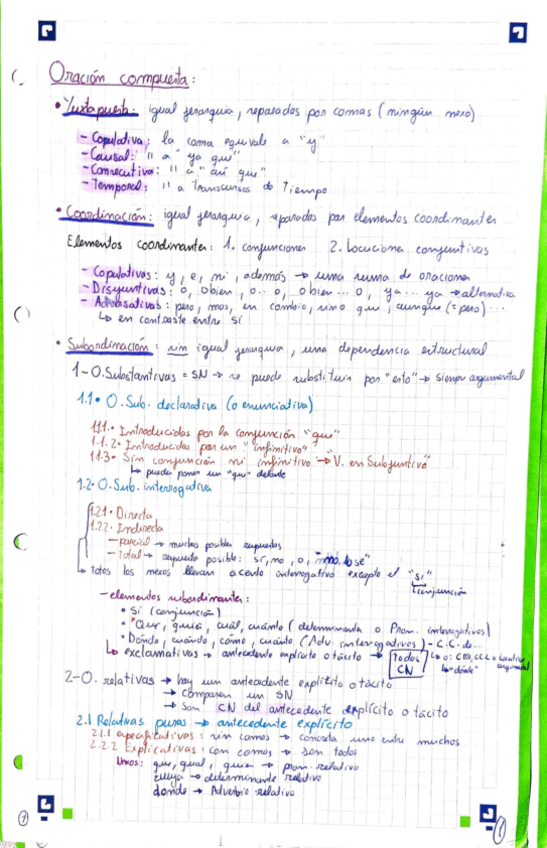 Oración compuesta:
• Yuxtapuesta: igual jerarquia, separados por comas (ningún nexo)
- Copulativa: la coma equivale a "y"
- Causal: " a "ya que"
- Consecutiva: " a "así que"
- Temporal: " a Transcurso de Tiempo
• Coordinación: igual jerarquia, separados por elementos coordinantes
Elementos coordinantes: 1. conjunciones 2. Locuciones conjuntivas
- Copulativas: y, e, ni, además → una suma de oraciones
- Disyuntivas: o, o bien, o... o, o bien... o, ya... ya → alternativa
- Adversativas: pero, mas, en cambio, sino que, aunque (=pero)...
↳ en contraste entre sí
• Subordinación: sin igual jerarquia, una dependencia estructural
1-O. Substantivas = SN → se puede substituir por "esto" → siempre argumental
1.1• O. Sub. declarativa (o enunciativa)
1.1.1.• Introducidas por la conjunción "que"
1.1.2• Introducidas por un "infinitivo"
1.1.3• Sin conjunción ni infinitivo → "V. en Subjuntivo"
↳ puedes poner un "que" delante
1.2• O. Sub. interrogativa
1.2.1• Directa
1.2.2• Indirecta
- parcial → muchas posibles respuestas
- Total → respuesta posible: sí, no, o, "no lo sé"
→ todos los nexos llevan acento interrogativo excepto el "si"
↳ conjunción
- elementos subordinantes:
• Si (conjunción)
• Que, quién, cuál, cuánto (determinante o Pron. interrogativos)
• Dónde, cuándo, cómo, cuánto (Adv. interrogativos) - C.C. de...
↳ exclamativas → antecedente explícito o tácito → Todos CN
"dónde"
2-O. relativas → hay un antecedente explícito o tácito
→ comparten un SN
→ son CN del antecedente explícito o tácito
2.1 Relativas puras → antecedente explícito
2.1.1 especificativas: sin comas → concreta uno entre muchos
2.2.2 Explicativas: con comas → son todos
Nexos: que, qual, quien → pron. relativo
cuyo → determinante relativo
donde → Adverbio relativo
1
1